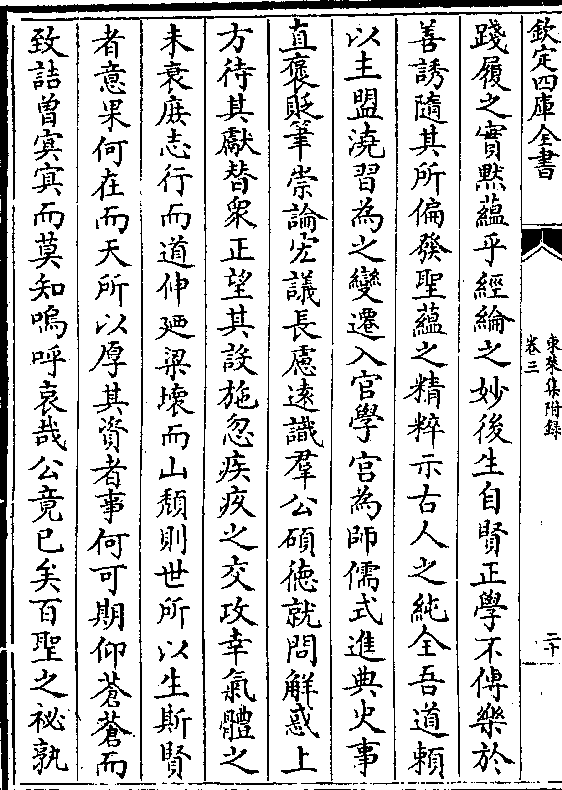 欽定四庫全書
東萊集附録
卷三
二十
踐履之實黙蘊乎經綸之妙後生自賢正學不傳樂於
善誘隨其所偏發聖蘊之精粹示古人之純全吾道頼
以主盟澆習為之變遷入官學官為師儒式進典火事
直襃貶筆崇論宏議長慮逺識羣公碩徳就問解惑上
方待其獻替衆正望其設施忽疾疢之交攻幸氣體之
未衰庻志行而道伸廼梁壊而山頽則世所以生斯賢
者意果何在而天所以厚其資者事何可期仰蒼蒼而
致詰曽㝠㝠而莫知嗚呼哀哉公竟已矣百聖之祕孰